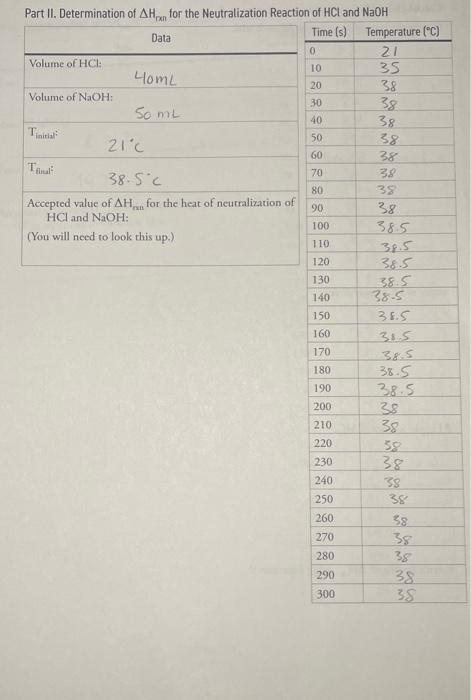 Part II. Determination of ΔHrxn for the Neutralization Reaction of HCl and NaOH
Data
Time (s) Temperature (°C)
Volume of HCl:
40mL
Volume of NaOH:
50 mL
Tinitial:
21°C
Tfinal:
38.5°C
Accepted value of ΔHrxn for the heat of neutralization of
HCl and NaOH:
(You will need to look this up.)
0 21
10 35
20 38
30 38
40 38
50 38
60 38
70 38
80 38
90 38
100 38.5
110 38.5
120 38.5
130 38.5
140 38.5
150 38.5
160 38.5
170 38.5
180 38.5
190 38.5
200 38
210 38
220 38
230 38
240 38
250 38
260 38
270 38
280 38
290 38
300 38